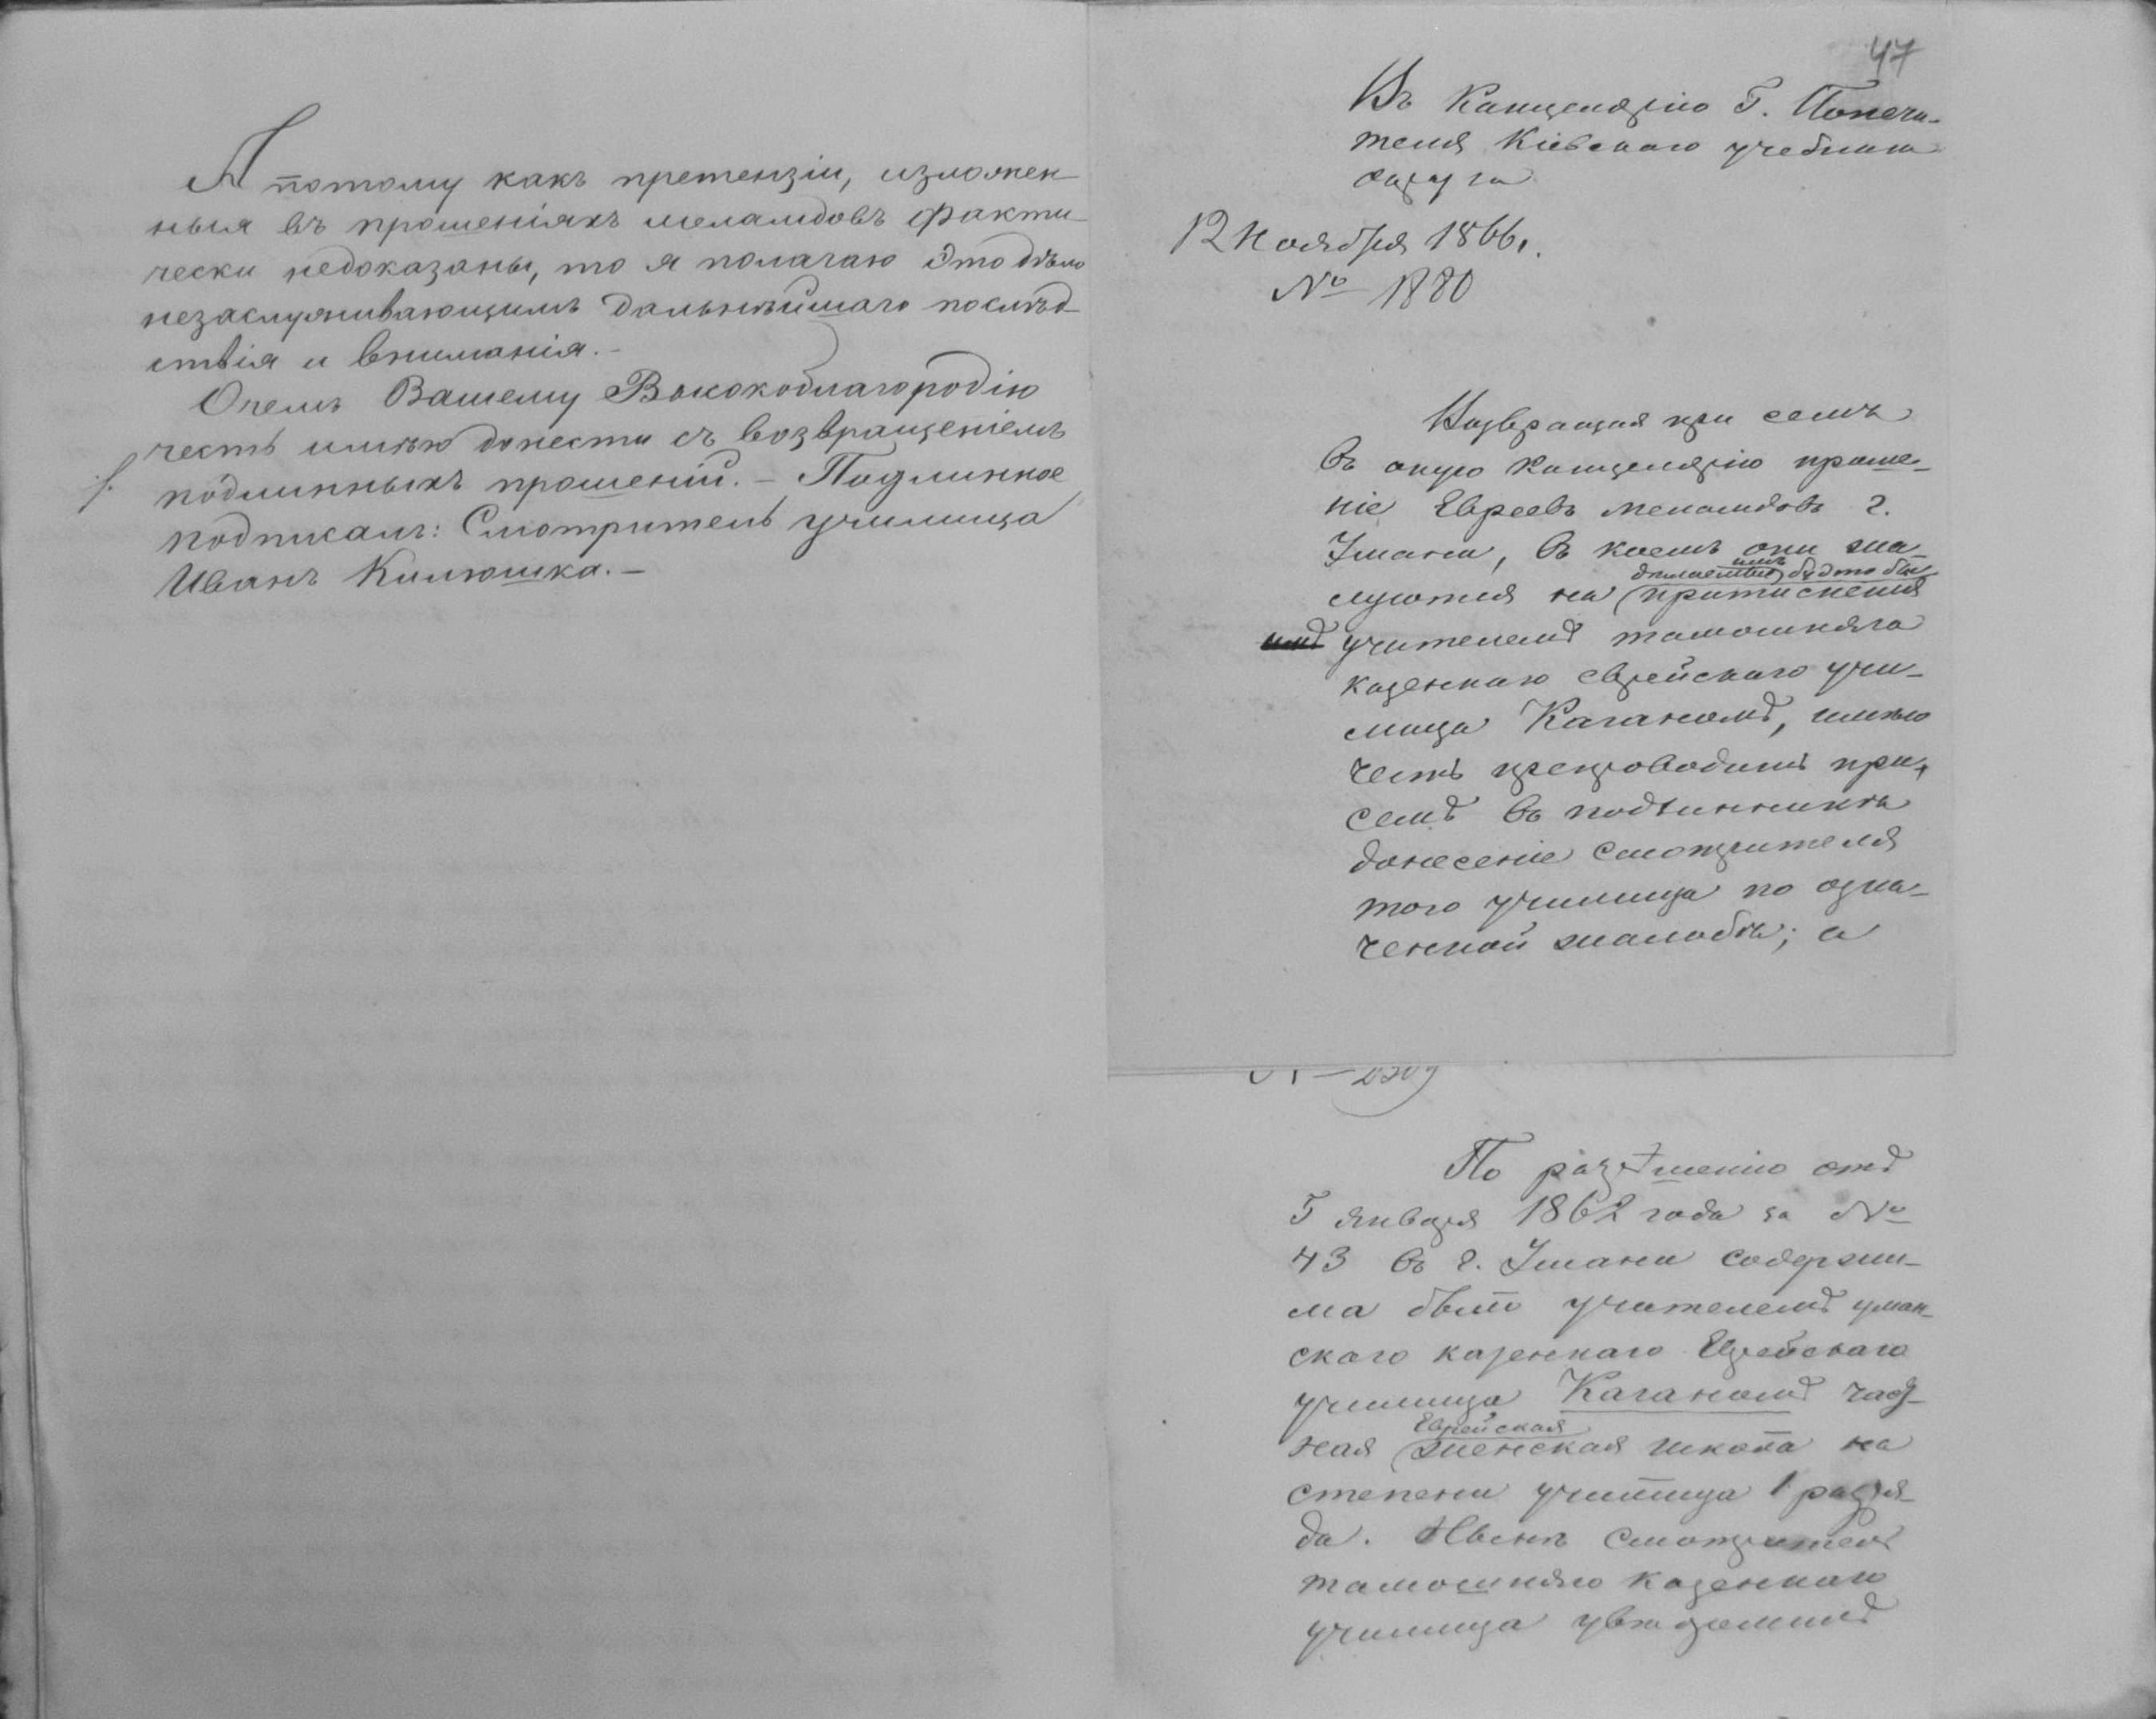 А потому какъ претензіи, изложен-
ныя въ прошеніяхъ меламдовъ факти-
чески недоказаны, то я полагаю это дѣло
незаслуживающимъ дальнѣйшаго послѣд-
ствія и вниманія. -
О чемъ Вашему Высокоблагородію
честь имѣю донести съ возвращеніемъ
подлинныхъ прошеній. - Подлинное
подписалъ: Смотритель училища
Иванъ Килюшка. -
47
Въ Канцелярію Г. Попечи-
теля Кіевскаго учебнаго
округа
12 Ноября 1866.
№ 1880
Возвращая при семъ
въ оную Канцелярію проше-
ніе Евреевъ меламдовъ г.
Умани, въ коемъ они жа-
дѣлаемыя имъ будто бы
луются на притѣсненія
учителемъ тамошняго
казеннаго еврейскаго учи-
лища Каганомъ, имѣю
честь препроводить при
семъ въ подлинникѣ
донесеніе смотрителя
того училища по озна-
ченной жалобѣ; а
По разрѣшенію отъ
5 января 1862 года за №
43 въ г. Умани содержи-
ма была учителемъ уман-
скаго казеннаго Еврейскаго
училища Каганомъ част-
Еврейская
ная женская школа на
степени училища 1 разря-
да. Нынѣ смотритель
тамошняго казеннаго
училища увѣдомилъ